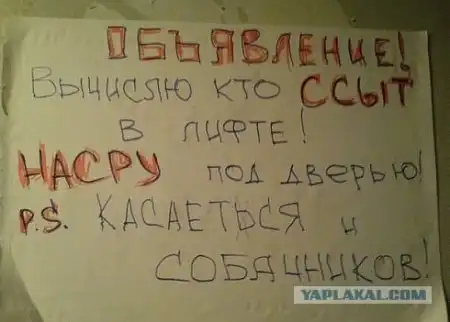 ОБЪЯВЛЕНИЕ!
ВЫЧИСЛЮ КТО ССЫТ
В ЛИФТЕ!
НАСРУ ПОД ДВЕРЬЮ!
P.S. КАСАЕТЬСЯ И
СОБАЧНИКОВ!
YAPLAKAL.COM